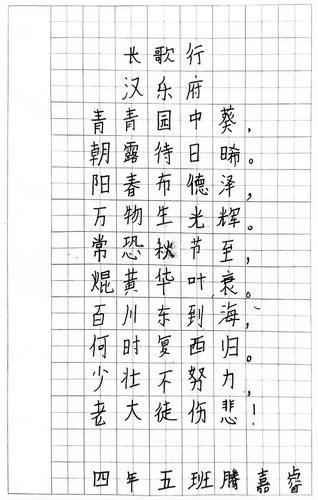 长歌行
汉乐府
青青园中葵，
朝露待日晞。
阳春布德泽，
万物生光辉。
常恐秋节至，
焜黄华叶衰。
百川东到海，
何时复西归。
少壮不努力，
老大徒伤悲！
四年五班腾嘉睿